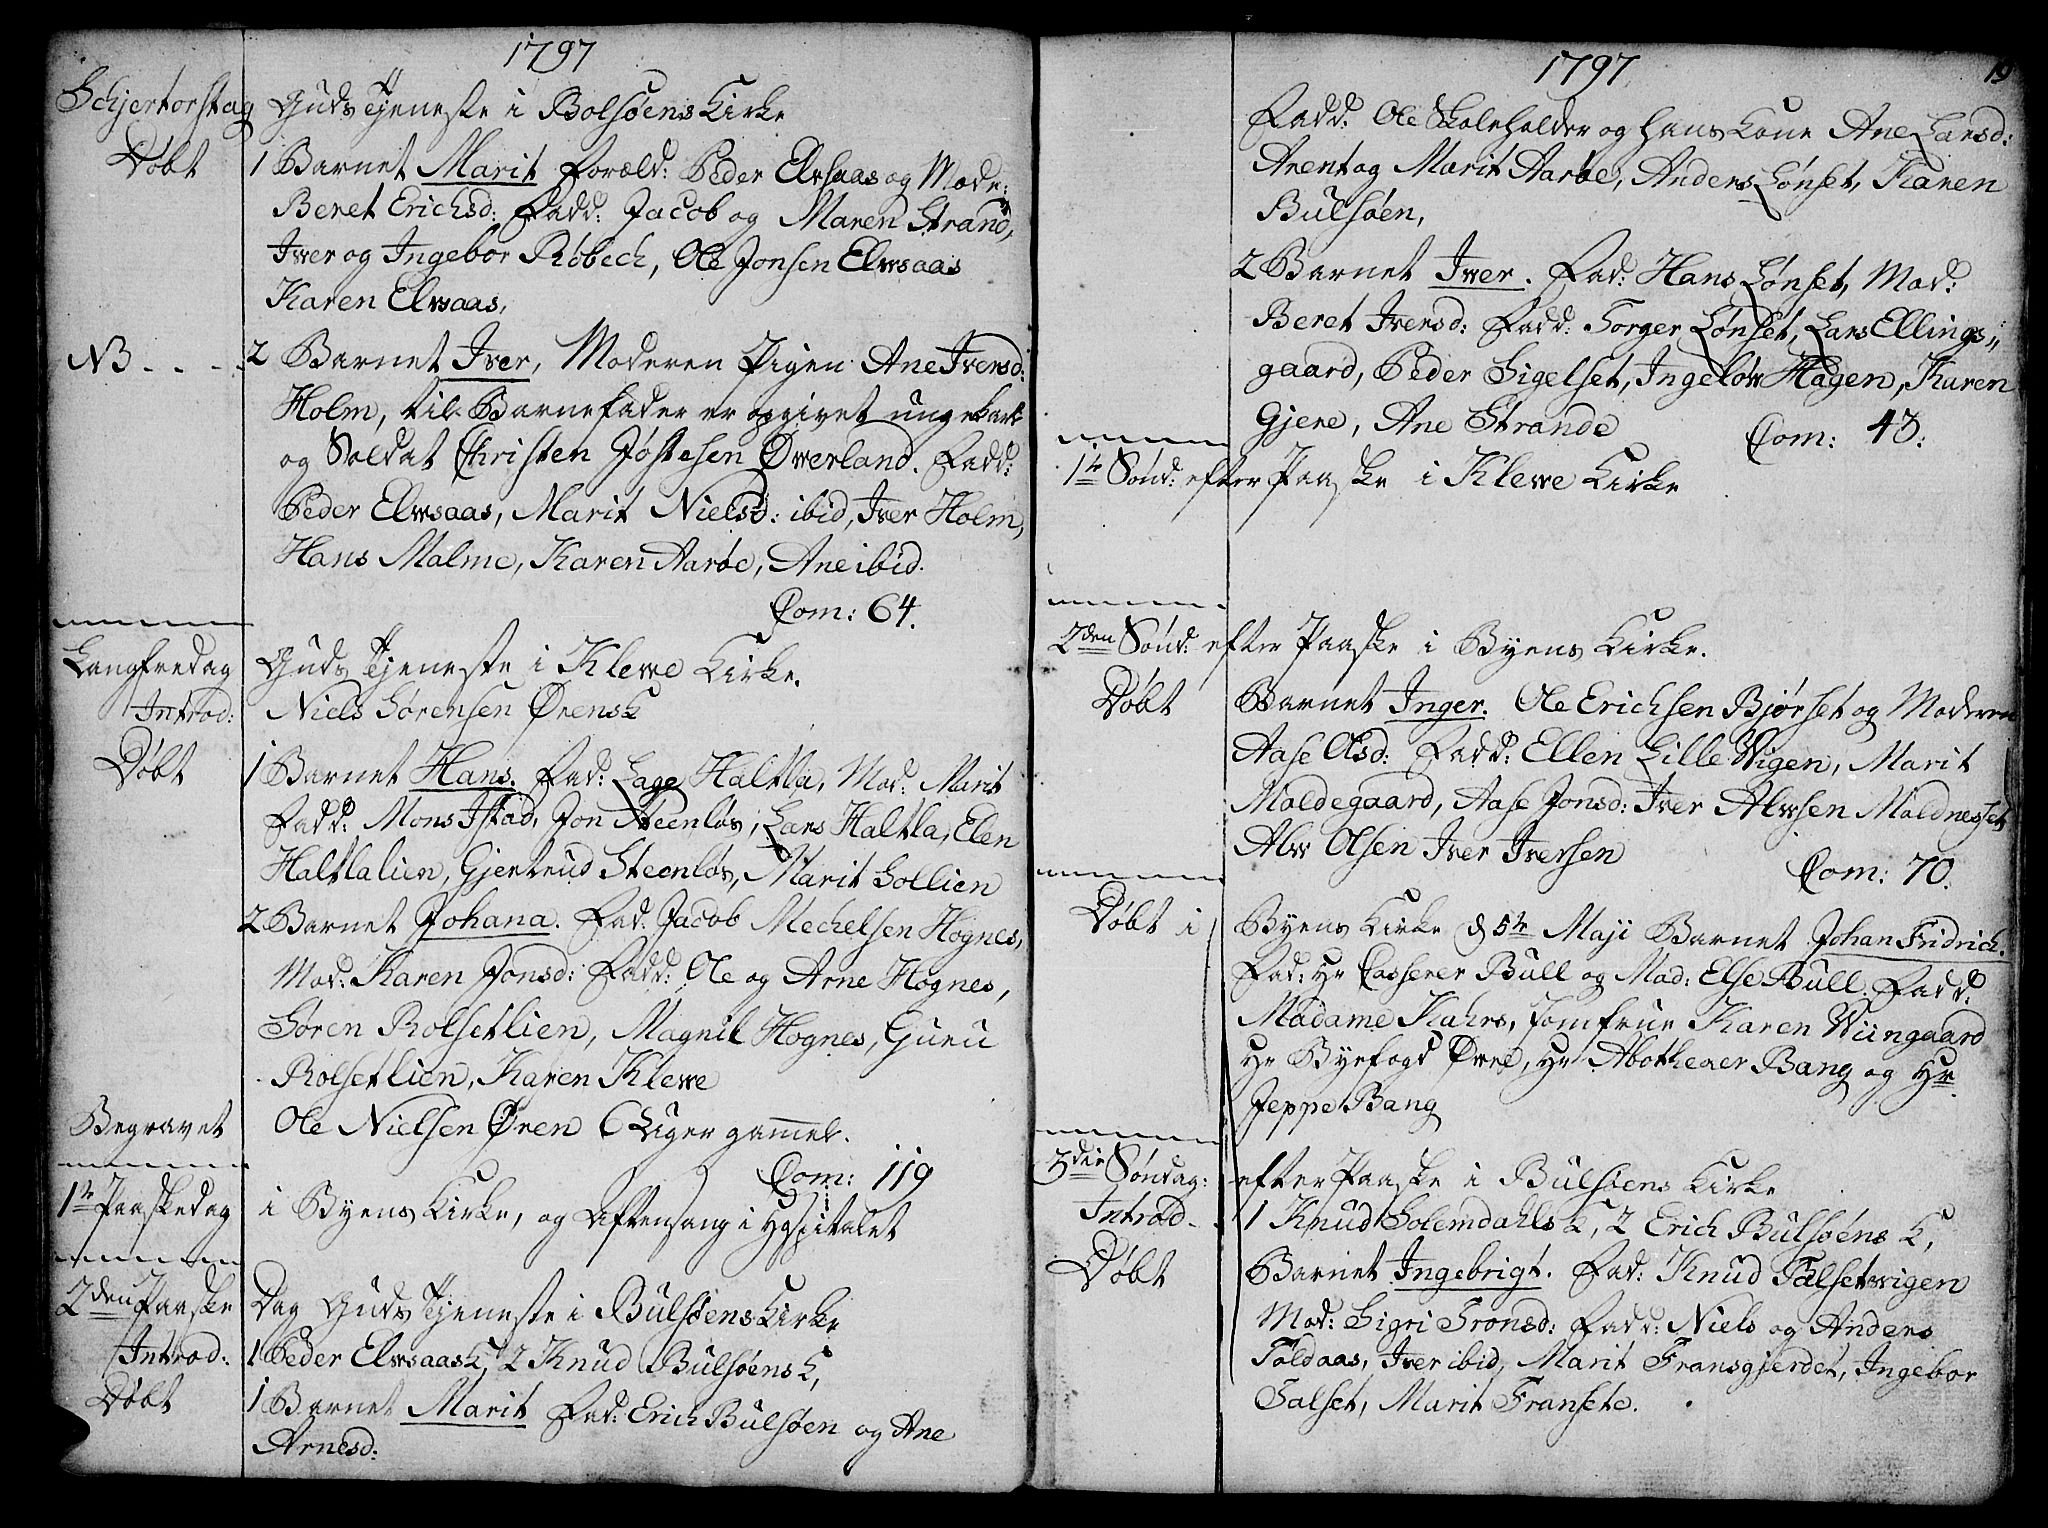 1797
Schjertorstag Guds Tjeneste i Bolsöens Kirke
Döbt 1 Barnet Marit Foræld: Peder Elvsaas og Mode:
Beret Erichsd: Fadd: Jacob og Maren Strand,
Iver og Ingebor Röbech, Ole Jonsen Elwsaas
Karen Elwsaas,
NB - - - 2 Barnet Iver, Moderen Pigen Ane Iversd:
Holm, til Barnefader er opgivet unge karl
og Soldat Christen Jöstesen Öwerland. Fadd:
Peder Elwsaas, Marit Nielsd: ibid, Iver Holm,
Hans Malme, Karen Aaröe, Ane ibid.
Com: 64.
Langfredag Guds Tjeneste i Klewe Kirke.
Introd: Niels Sörensen Örens K
Döbt 1 Barnet Hans. Fad: Lage Haltla, Mod: Marit
Fadd: Mons Istad, Jon Steenlös, Lars Haltla, Elen
Haltlalien, Gjertrud Steenlös, Marit Sollien
2 Barnet Johana. Fad: Jacob Mechelsen Hognes,
Mod: Karen Jonsd: Fadd: Ole og Arne Hognes,
Sören Rolsetlien, Magnil Hognes, Guru
Rolsetlien, Karen Klewe
Begravet Ole Nielsen Ören 6 Uger gammel.
Com: 119
1te Paaskedag i Byens Kirke, og Aftensang i Hospitalet
2den Paaske Dag Guds Tjeneste i Bulsöens Kirke
Introd: 1 Peder Elwsaas K, 2 Knud Bulsöens K,
Döbt 1 Barnet Marit Fad: Erich Bulsöen og Ane
Arnesd:
1797 19
Fadd: Ole Skoleholder og hans Kone Ane Larsd:
Arent og Marit Aaröe, Anders Lönset, Karen
Bulsöen,
2 Barnet Iver. Fad: Hans Lönset, Mod:
Beret Iversd: Fadd: Torger Lönset, Lars Ellings„
gaard, Peder Sigelset, Ingelöw Hagen, Karen
Gjere, Ane Strande Com: 43:
1te Sönd: efter Paaske i Klewe Kirke
2den Sönd: efter Paaske i Byens Kirke.
Döbt Barnet Inger. Ole Erichsen Bjørset og Moderen
Aase Olsd: Fadd: Ellen Lille Wigen, Marit
Moldegaard, Aase Jonsd: Iver Alwsen Moldnesset
Alw Olsen Iver Iversen Com: 70.
Döbt i Byens Kirke d 5te Maji Barnet Johan Fridrich.
Fad: Hr Casserer Bull og Mad: Else Bull. Fadd:
Madame Kahrs, Jomfrue Karen Wiingaard
Hr Byefogd Öwre, Hr Abotheker Bang og Hr
Jeppe Bang
3die Söndag: efter Paaske i Bulsöens Kirke
Introd - 1 Knud Solemdahls K, 2 Erich Bulsöens K,
Döbt Barnet Ingebrigt. Fad: Knud Falsetwigen
Mod: Sigri Tronsd: Fadd: Niels og Anders
Toldaas, Iver ibid, Marit Fransgjerdet, Ingebor
Falset, Marit Fransete.